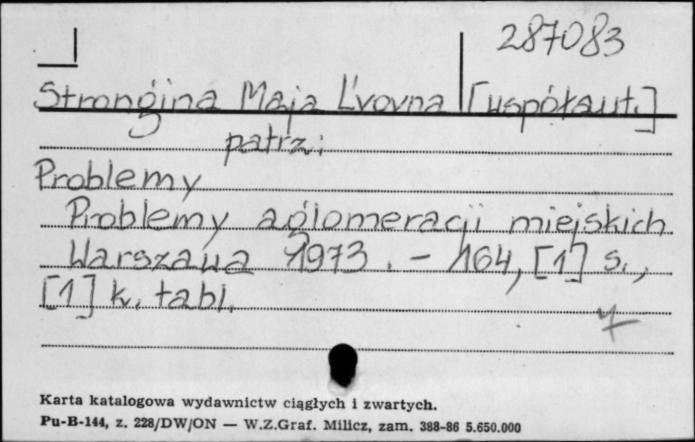 287083
Strongina Maja L'vovna [współaut.]
patrz:
Problemy
Problemy aglomeracji miejskich.
Warszawa 1973. - 164, [1] s.,
[1] k. tabl.
Karta katalogowa wydawnictw ciągłych i zwartych.
Pu-B-144, z. 228/DW/ON — W.Z.Graf. Milicz, zam. 388-86 5.650.000